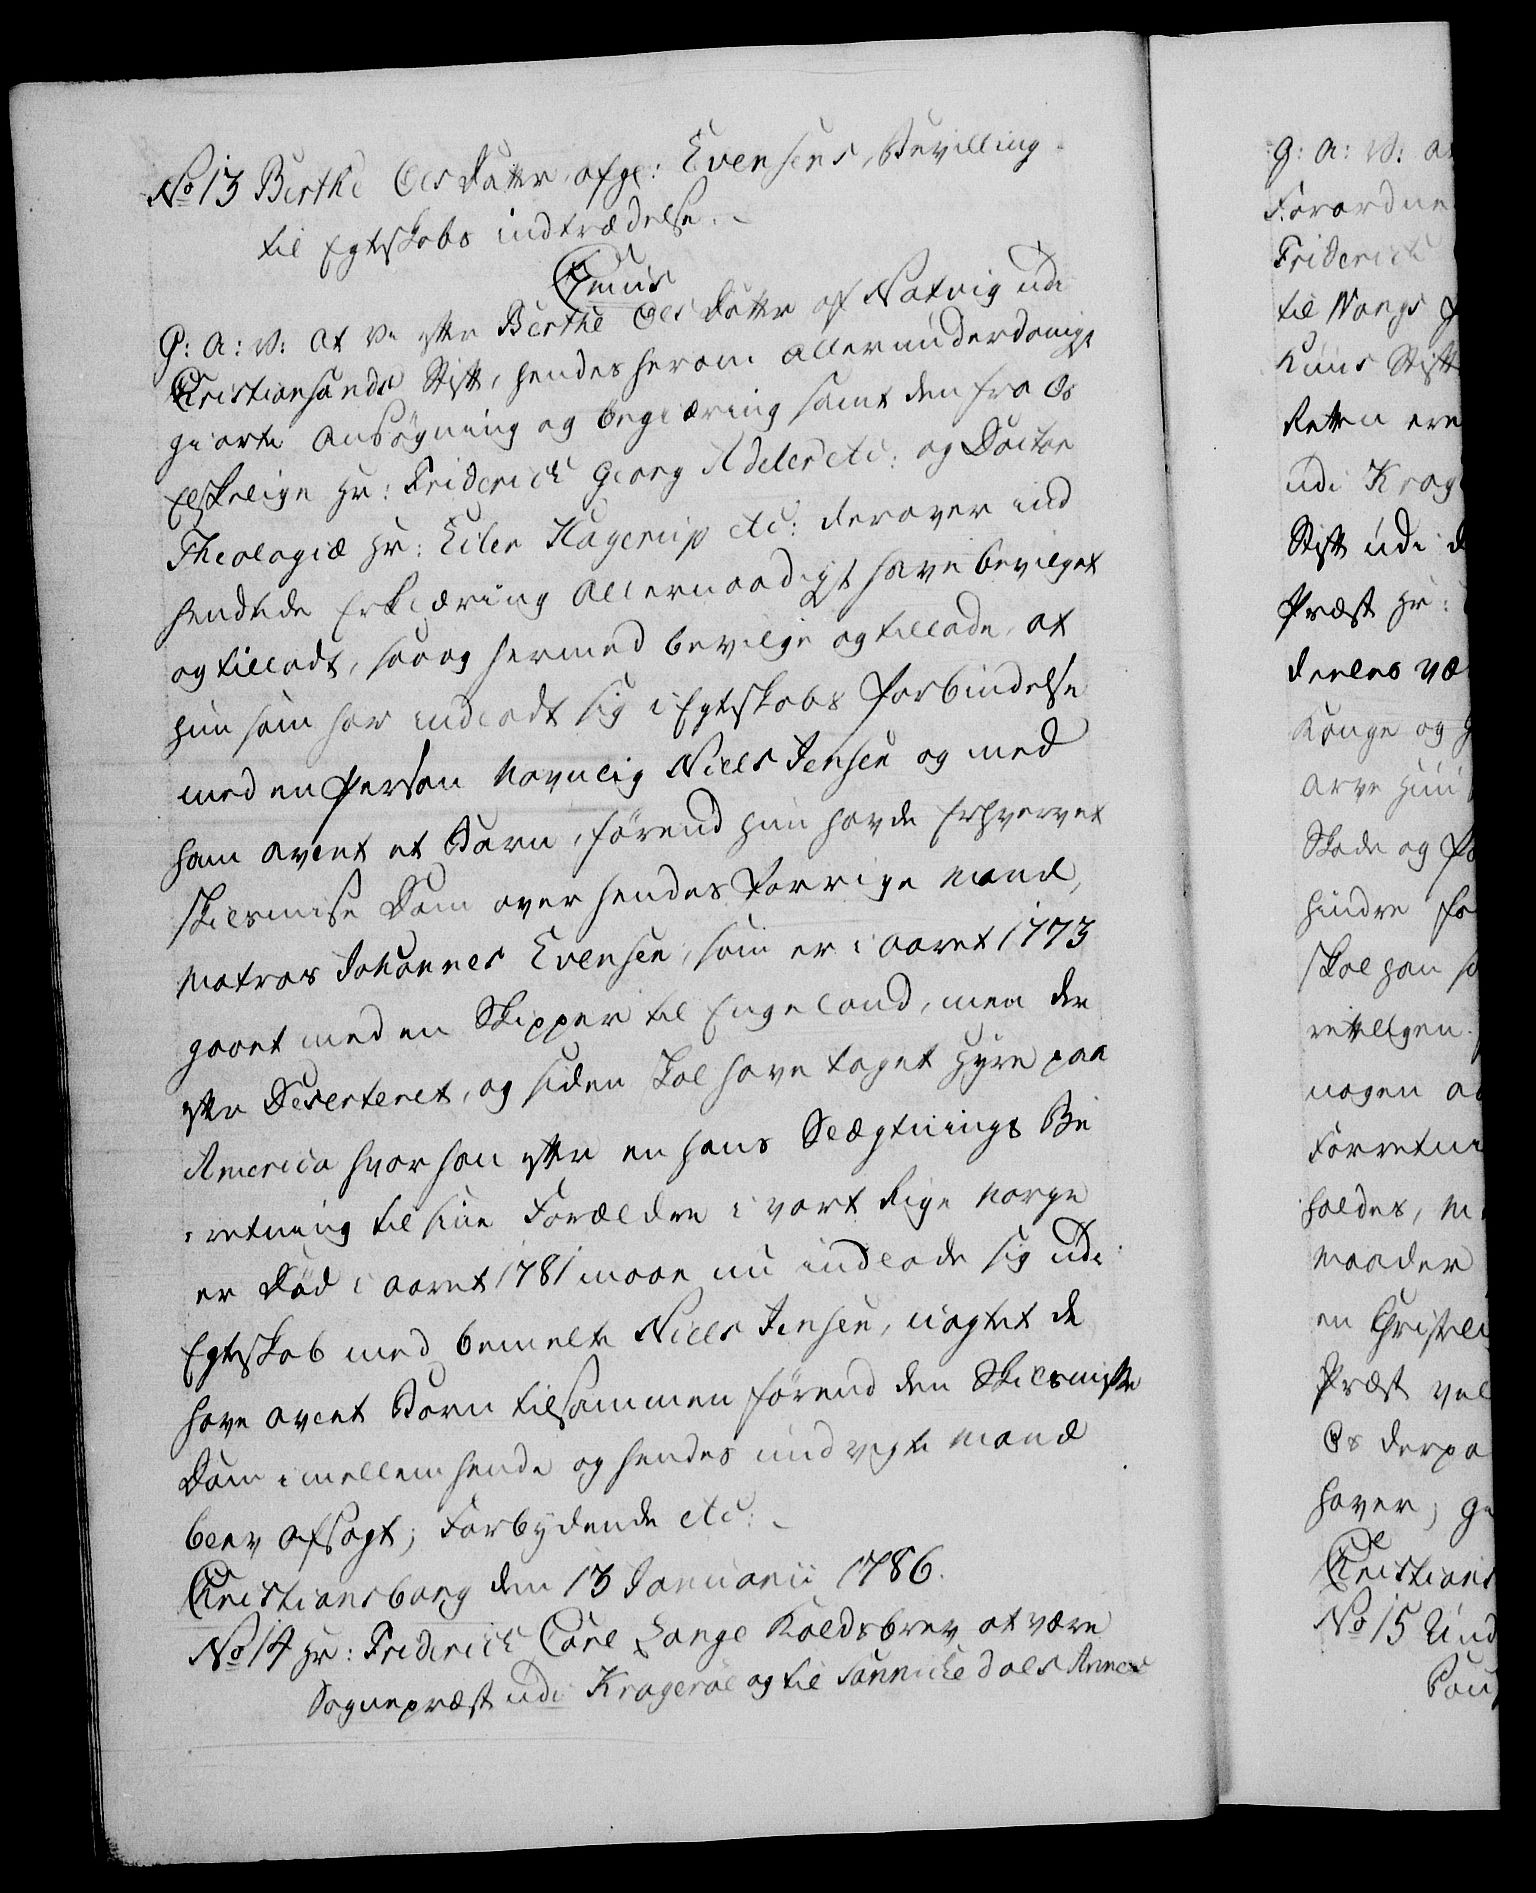 No 13 Berthe Olsdatter, afgl: Evensens, Bevilling
til Egteskabs indtrædelse. –
Gratis
G: A: V: At Vi efter Berthe Olsdatter af Natvig udi
Christiansands Stift, hendes herom allerunderdanigst
giorte Ansøgning og begiæring samt den fra Os
Elskelige Hr: Friderich Georg Adeler etc: og Doctor
Theologiæ Hr: Eiler Hagerup etc: derover ind
hendtede Erklæring Allernaadigst have bevilget
og tilladt, saa og hermed bevilge og tillade, at
hun som har indladt sig i Egteskabs Forbindelse
med en Person navnlig Niels Jensen og med
ham avlet et Barn, førend hun havde Erhvervet
skilsmise Dom over hendes Forrige Mand,
Matros Johannes Evensen, som er i aaret 1773
gaaet med en Skipper til Engeland, men der
fra Deserteret, og siden skal have taget Hyre paa
America hvor han efter en hans Slægtnings Be
retning til sine Forældre i vort Rige Norge
er Død i aaret 1781 maae nu indlade sig udi
Egteskab med bemelte Niels Jensen, uagtet de
have avlet Barn tilsammen førend den Skilsmisse
Dom imellem hende og hendes undvigte Mand
blev afsagt; Forbydende etc: –
Christiansborg den 13 Januarii 1786.
No 14 Hr: Friderich Carl Lange Kaldsbrev at være
Sognepræst udi Krageröe og til Sannickedals Annex
G: A: V: a
Forordne
Friderich
til Vangs
huus Stift
Retten ere
udi Krag
Stift udi d
Præst Hr:
deeles væ
Konge og
Arve Hun
Skade og
hindre
skal han
rettelgen
nogen
Forretni
holdes,
Maader
en Christeli
Præst vel
Os derpa
haver; g
Christians
No 15 Und